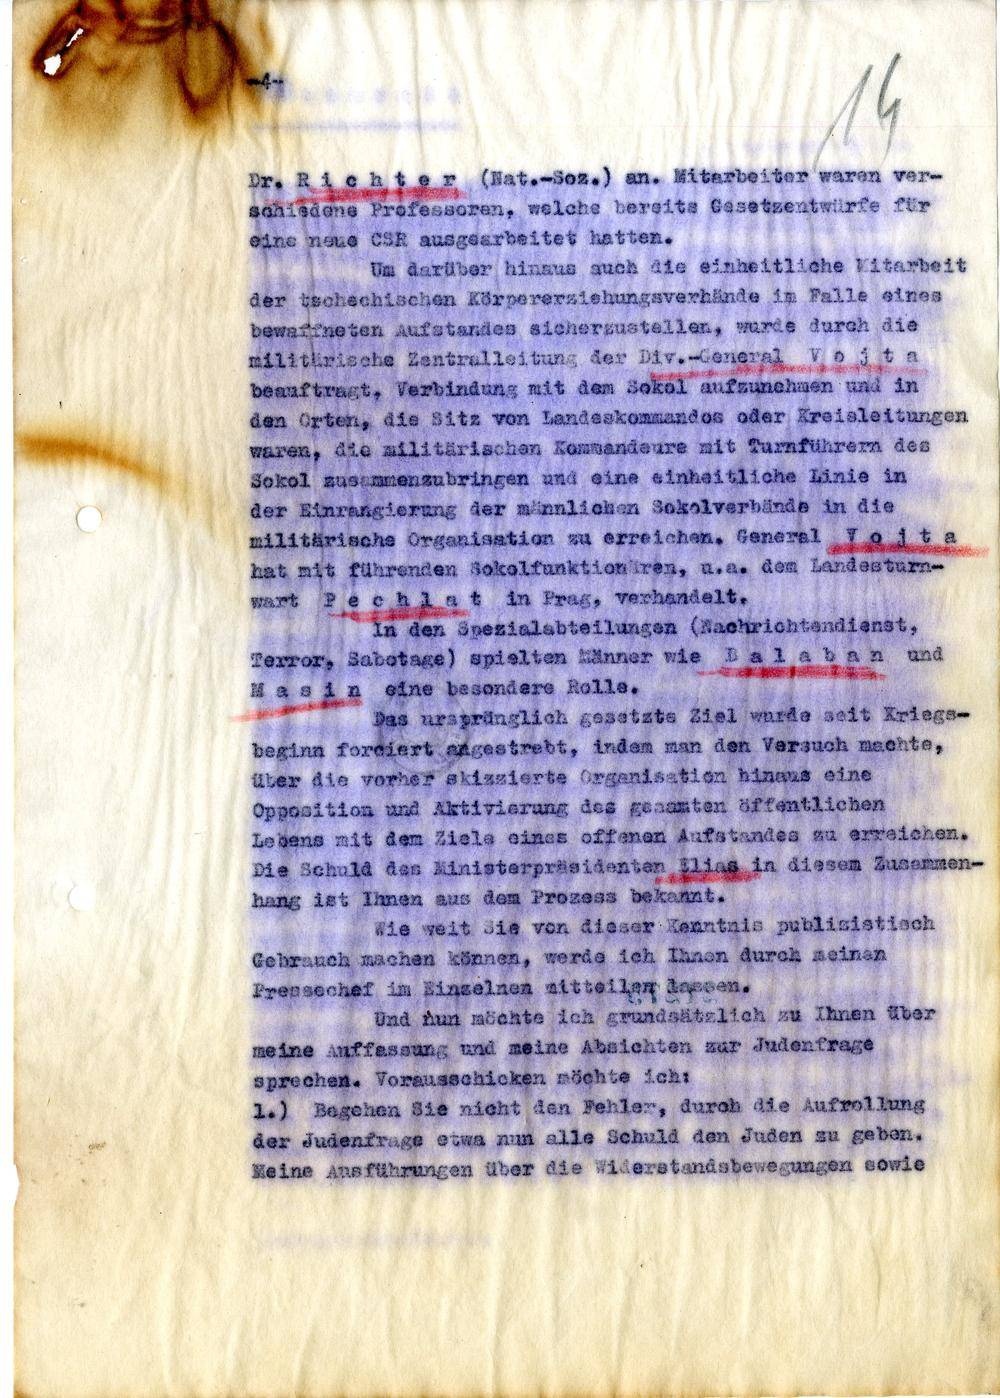 -4-
14
Dr. R i c h t e r (Nat.-Soz.) an. Mitarbeiter waren ver-
schiedene Professoren, welche bereits Gesetzentwürfe für
eine neue CSR ausgearbeitet hatten.
Um darüber hinaus auch die einheitliche Mitarbeit
der tschechischen Körpererziehungsverbände im Falle eines
bewaffneten Aufstandes sicherzustellen, wurde durch die
militärische Zentralleitung der Div.-General V o j t a
beauftragt, Verbindung mit dem Sokol aufzunehmen und in
den Orten, die Sitz von Landeskommandos oder Kreisleitungen
waren, die militärischen Kommandeure mit Turnführern des
Sokol zusammenzubringen und eine einheitliche Linie in
der Einrangierung der männlichen Sokolverbände in die
militärische Organisation zu erreichen. General V o j t a
hat mit führenden Sokolfunktionären, u.a. dem Landesturn-
wart P e c h l a t in Prag, verhandelt.
In den Spezialabteilungen (Nachrichtendienst,
Terror, Sabotage) spielten Männer wie B a l a b a n und
M a s i n eine besondere Rolle.
Das ursprünglich gesetzte Ziel wurde seit Kriegs-
beginn forciert angestrebt, indem man den Versuch machte,
über die vorher skizzierte Organisation hinaus eine
Opposition und Aktivierung des gesamten öffentlichen
Lebens mit dem Ziele eines offenen Aufstandes zu erreichen.
Die Schuld des Ministerpräsidenten Elias in diesem Zusammen-
hang ist Ihnen aus dem Prozess bekannt.
Wie weit Sie von dieser Kenntnis publizistisch
Gebrauch machen können, werde ich Ihnen durch meinen
Pressechef im Einzelnen mitteilen lassen.
Und nun möchte ich grundsätzlich zu Ihnen über
meine Auffassung und meine Absichten zur Judenfrage
sprechen. Vorausschicken möchte ich:
1.) Begehen Sie nicht den Fehler, durch die Aufrollung
der Judenfrage etwa nun alle Schuld den Juden zu geben.
Meine Ausführungen über die Widerstandsbewegungen sowie